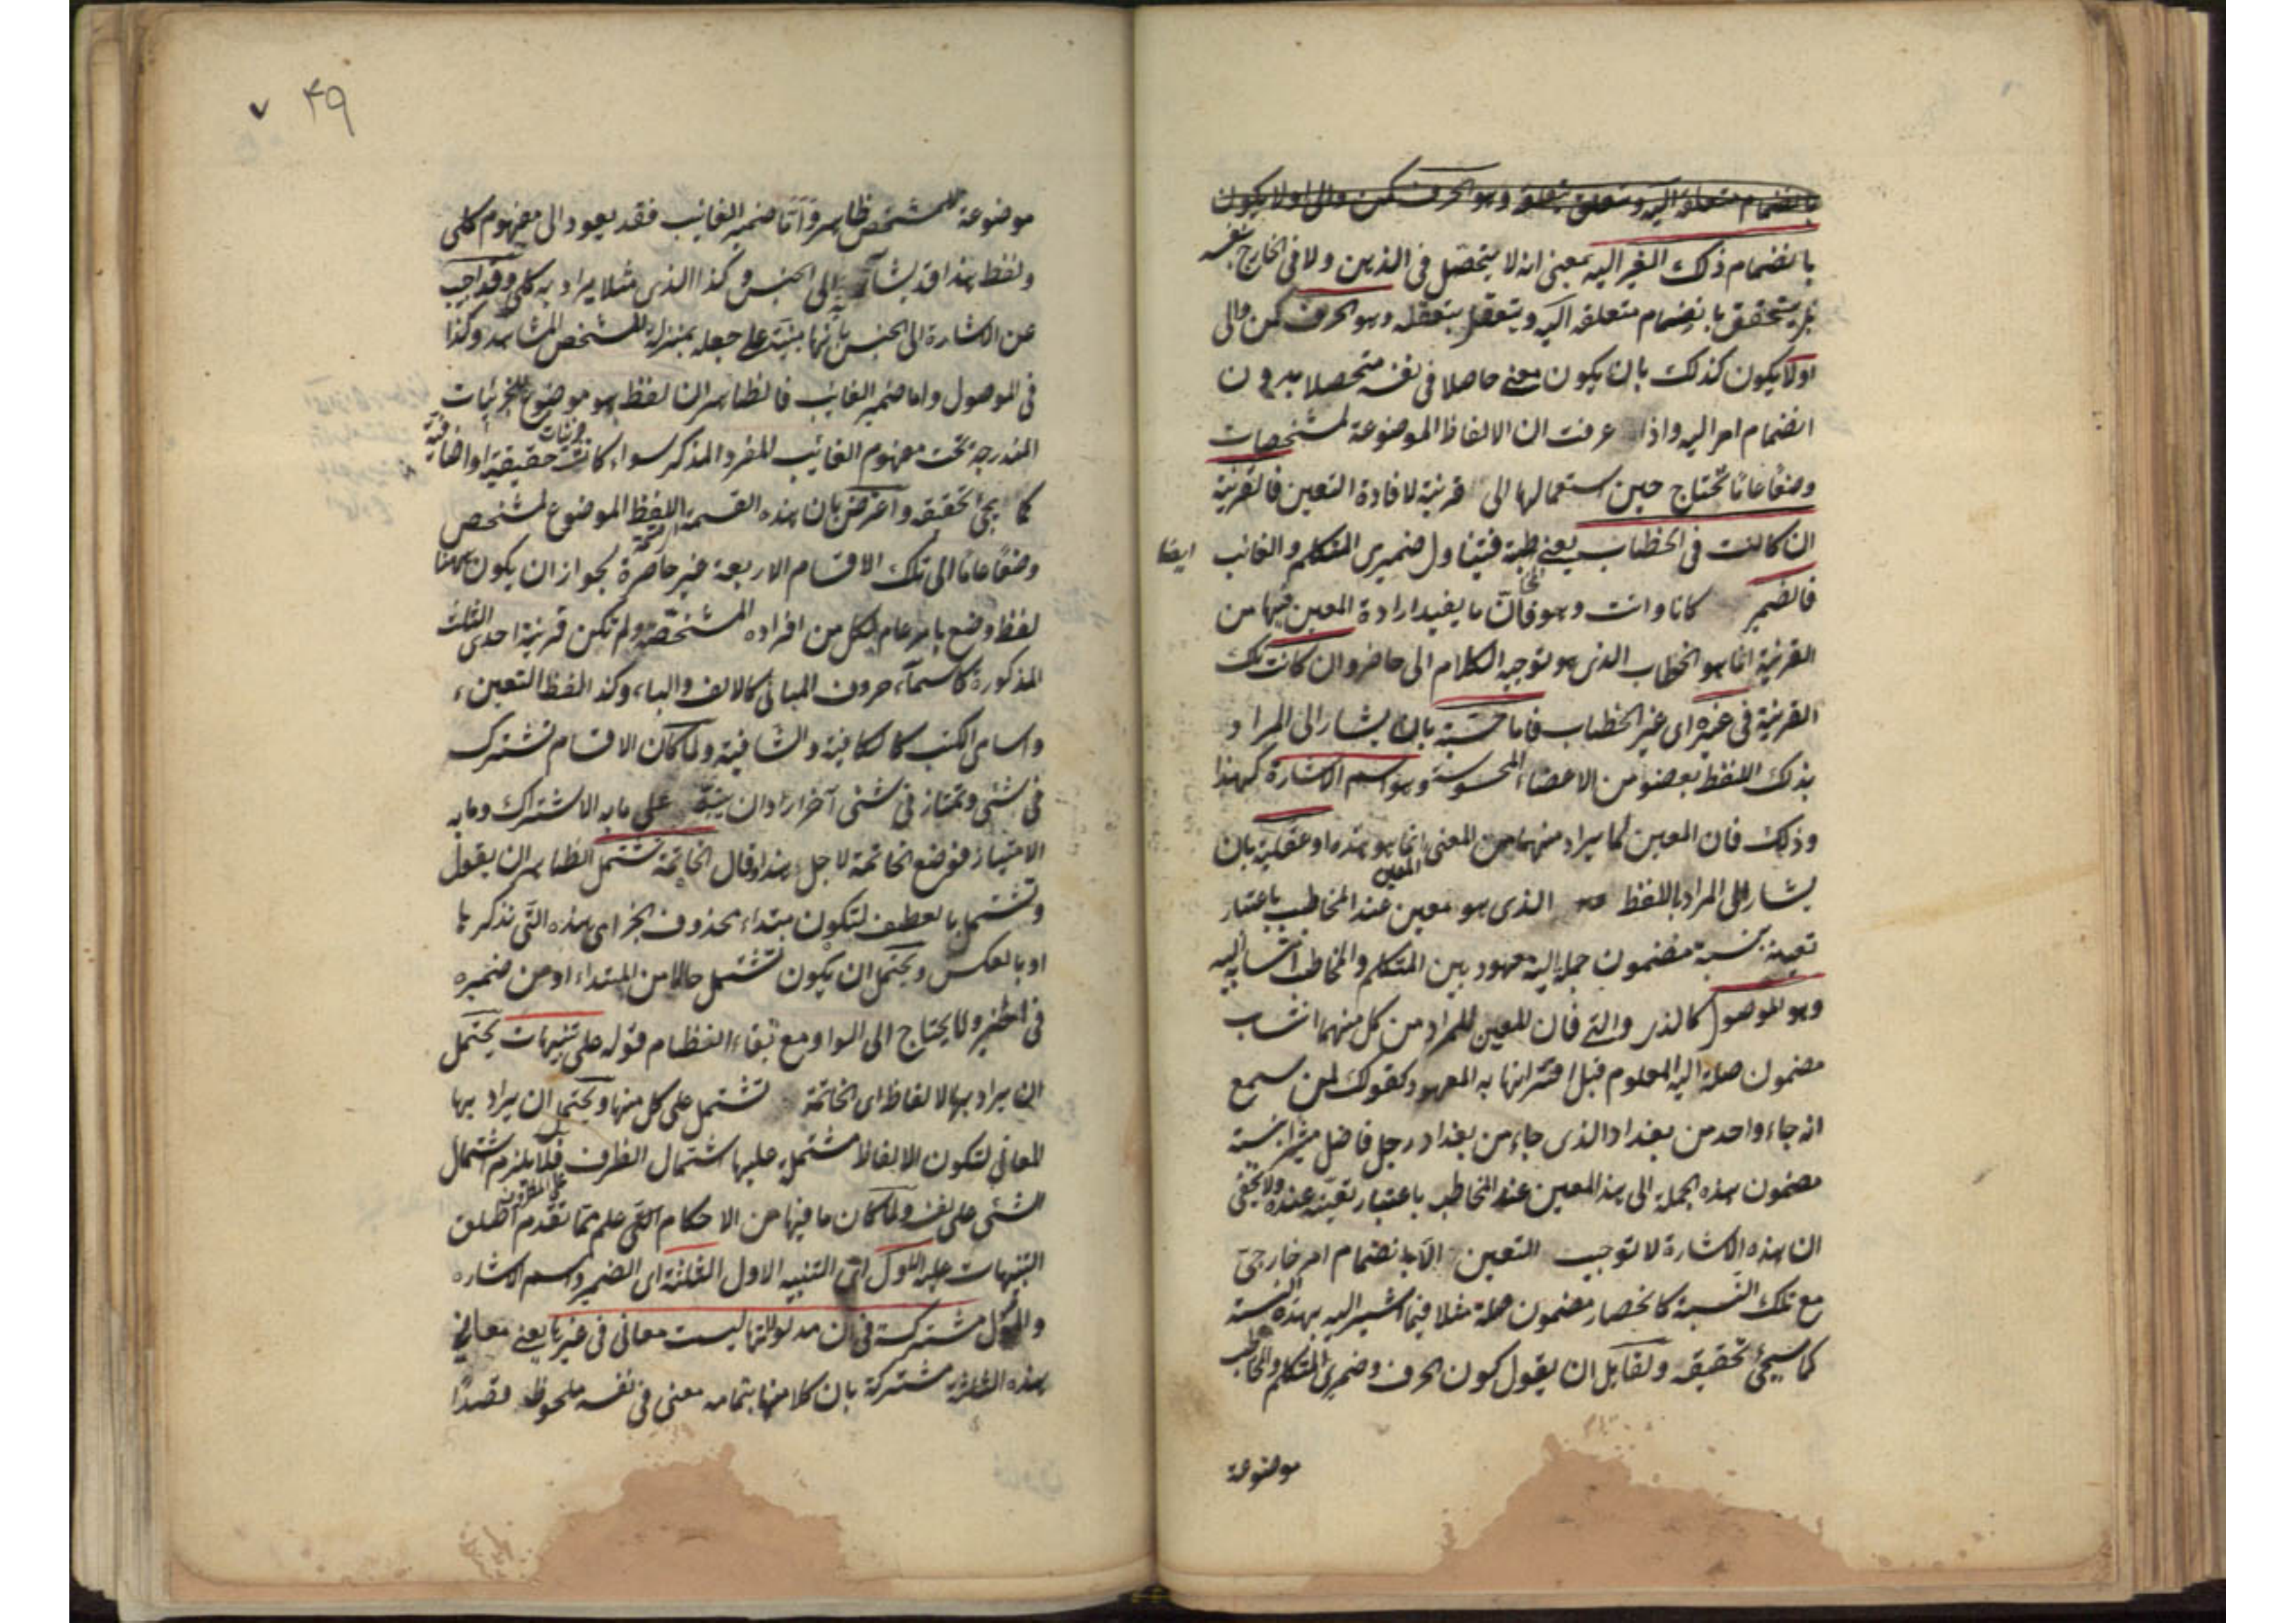 بانضمام متعلقه اليه ويتعقل بتعقله وهو الحرف كمن والى او لا يكون
بانضمام ذلك الغير اليه بمعنى انه لا يتحصل فى الذهن ولا فى الخارج بنفسه
بل يتحقق بانضمام متعلقه اليه ويتعقل بتعقله وهو الحرف كمن والى
اولا يكون كذلك بان يكون معنى حاصلا فى نفسه متحصلا بدون
انضمام امر اليه واذا عرفت ان الالفاظ الموضوعة لمشخصات
وضعا عاما تحتاج حين استعمالها الى قرينة لافادة التعين فالقرينة
ان كانت فى الخطاب يعنى فيتناول ضميرى المتكلم والغائب ايضا
فالضمير كانا وانت وهو فان ما يفيد ارادة المعين فيها من
القرينة انما هو الخطاب الذى هو توجيه الكلام الى حاضر وان كانت تلك
القرينة فى غيره اى غير الخطاب فاما حسية بان يشار الى المراد
بذلك اللفظ بعضو من الاعضاء المحسوسة وهو اسم الاشارة كهذا
وذلك فان المعين لما يراد منهما من المعنى انما هو هذه او عقلية بان
يشار الى المراد باللفظ المعين الذى هو معين عند المخاطب باعتبار
تعينه نسبة مضمون جملة اليه معهود بين المتكلم والمخاطب انتسابه اليه
وهو الموصول كالذى والتى فان المعين للمراد من كل منهما انتساب
مضمون صلة اليه المعلوم قبل اقترانها به المعهود كقولك لمن سمع
انه جاء واحد من بغداد الذى جاء من بغداد رجل فاضل مشيرا بنسبة
مضمون هذه الجملة الى هذا المعين عند المخاطب باعتبار تعينه عنده ولا يخفى
ان هذه الاشارة لا توجب التعين الا بانضمام امر خارجى
مع تلك النسبة كانحصار مضمون صلة مثلا فيما اشير اليه بهذه النسبة
كما سيجئ تحقيقه ولقائل ان يقول كون الحرف وضميرى المتكلم والمخاطب
موضوعة
٤٩ ٧
موضوعة للمشخص ظاهر واما ضمير الغائب فقد يعود الى مفهوم كلى
ولفظ هذا قد يشار به الى الجنس وكذا الذى مثلا يراد به كلى وقد اجيب
عن الاشارة الى الجنس بانها مبنية على جعله بمنزلة المشخص المشاهد وكذا
فى الموصول واما ضمير الغائب فالظاهر ان لفظ هو موضوع للجزئيات
المندرجة تحت مفهوم الغائب المفرد المذكر سواء كانت جزئيات حقيقية او اضافية
كما يجئ تحقيقه واعترض بان هذه القسمة اللفظ الموضوع لمشخص
وضعا عاما الى تلك الاقسام الاربعة غير حاصرة لجواز ان يكون ههنا
لفظ وضع بامر عام لكل من افراده المشخصة ولم تكن قرينة احدى الثلث
المذكورة كاسماء حروف المبانى كالالف والباء وكذا لفظ التعين
واسامى الكتب كالكافية والشافية ولما كان الاقسام تشترك
فى شئ وتمتاز فى شئ آخر اراد ان ينبه على ما به الاشتراك وما به
الامتياز فوضع الخاتمة لاجل هذا وقال الخاتمة تشتمل الظاهر ان يقول
وتشتمل بالعطف لتكون مبتداء محذوف الخبر اى هذه التى نذكرها
او بالعكس ويحتمل ان يكون تشتمل حالا من المبتداء او من ضميره
فى الخبر ولا يحتاج الى الواو مع بقاء النظام قوله على تنبيهات يحتمل
ان يراد بها الالفاظ اى الخاتمة تشتمل على كل منها ويحتمل ان يراد بها
المعانى لتكون الالفاظ مشتملة عليها اشتمال الظرف على المظروف فلا يلزم اشتمال
الشئ على نفسه ولما كان ما فيها من الاحكام التى علم مما تقدم اطلق
التنبيهات عليه الاول اى التنبيه الاول الثلثة اى الضمير واسم الاشارة
والموصول مشتركة فى ان مدلولاتها ليست معانى فى غيرها يعنى معانى
هذه الثلثة مشتركة بان كلا منها بتمامه معنى فى نفسه ملحوظ قصدا